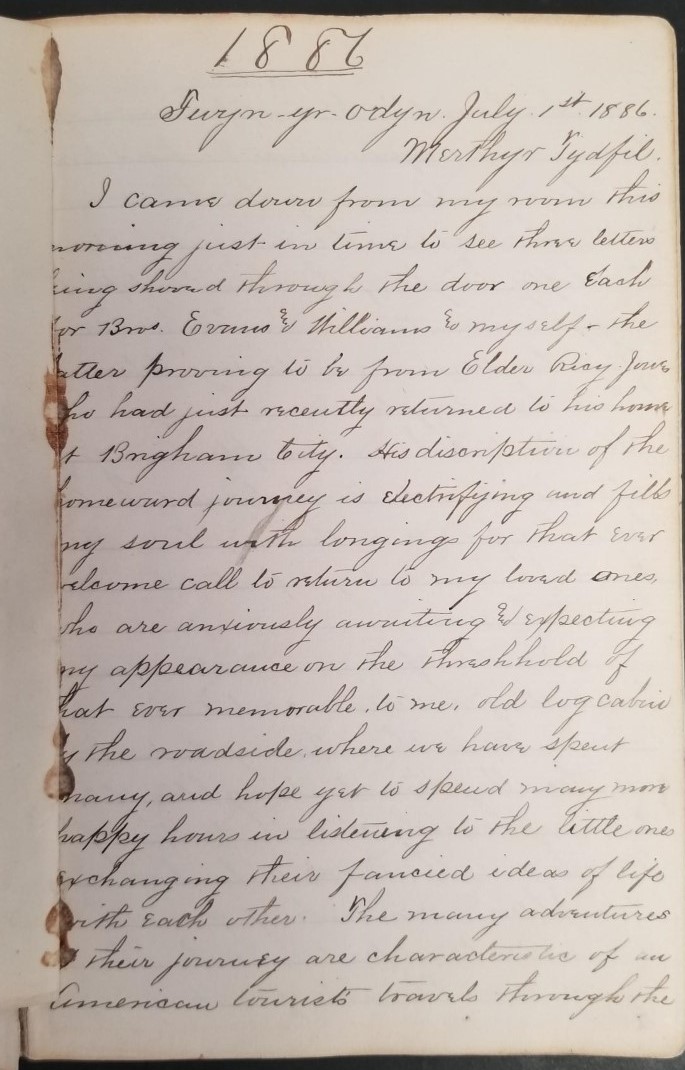 1886
Twyn-yr-odyn. July. 1st 1886.
Merthyr Tydfil.
I came down from my room this
morning just in time to see three letters
being shoved through the door one Each
for Bros. Evans & Williams & myself - the
latter proving to be from Elder Ricy. Jones
who had just recently returned to his home
at Brigham City. His discription of the
homeward journey is electrifying and fills
my soul with longings for that ever
welcome call to return to my loved ones,
who are anxiously awaiting & expecting
my appearance on the threshhold of
that ever memorable, to me, old log cabin
by the roadside, where we have spent
many, and hope yet to spend many more
happy hours in listening to the little ones
exchanging their fancied ideas of life
with each other. The many adventures
of their journey are characteristic of an
American tourists travels through the